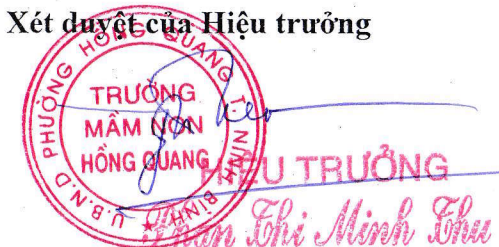 Xét duyệt của Hiệu trưởng
U.B.N.D PHƯỜNG HỒNG QUANG T. NINH BÌNH
TRƯỜNG
MẦM NON
HỒNG QUANG
HIỆU TRƯỞNG
Phan Thi Minh Thu